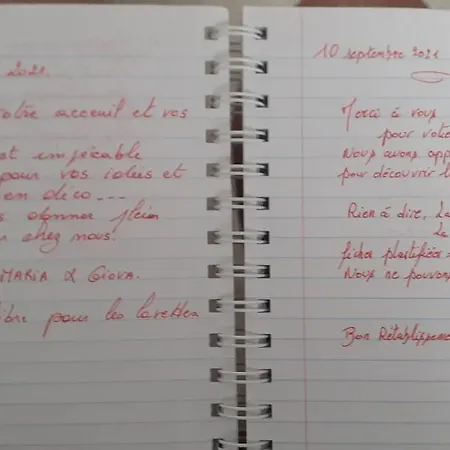 2021.
votre acceuil et vos
est impécable
pour vos idées et
en déco ----
donner plein
chez nous.
MARIA & Giova.
pour les lavettes
10 septembre 2021
Merci à vous
pour votre
Nous avons app
pour découvrir l
Rien à dire, La
La
fiches plastifiées
Nous ne pouvons
Bon Rétablisseme